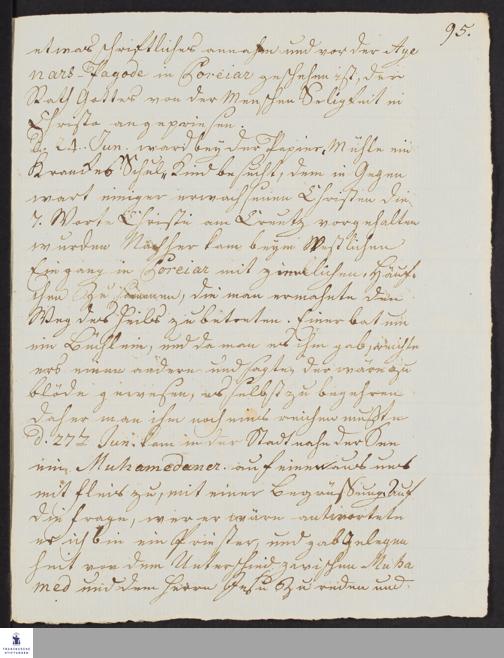 95.
etwas schriftliches annahm und vor der Aye
nars-Pagode in Poreiar geschehen ist, der
Rath Gottes von der Menschen Seligkeit in
Christo angepriesen.
d. 21. Jun. ward bey der Papier-Mühle ein
Kranckes Schul-Kind besucht, dem in Gegen
wart einiger erwachsenen Christen die
7. Worte Christi am Creutz vorgehalten
wurden Nachher kam beym Westlichen
Eingang in Poreiar mit ziemlichen Häuf
chen zu, die man ermahnte den
Weg des Heils zu betreten. Einer bat um
ein Büchlein, und da man es ihm gab, reichte
ers einem andern und sagte, der wäre zu
blöde gewesen, es selbst zu begehren
daher man ihm noch eines reichen mußte
d. 22 Jun. kam in der Stadt nahe der See
ein Muhamedaner auf einen aus uns
mit fleis zu, mit einer Begrüssung. Auf
die frage, wer er wäre antwortete
er ich bin ein Priester, und gab Gelegen
heit von dem Unterschied zwischen Muha
med und dem Herrn Jesu zu reden und
FRANCKESCHE
STIFTUNGEN